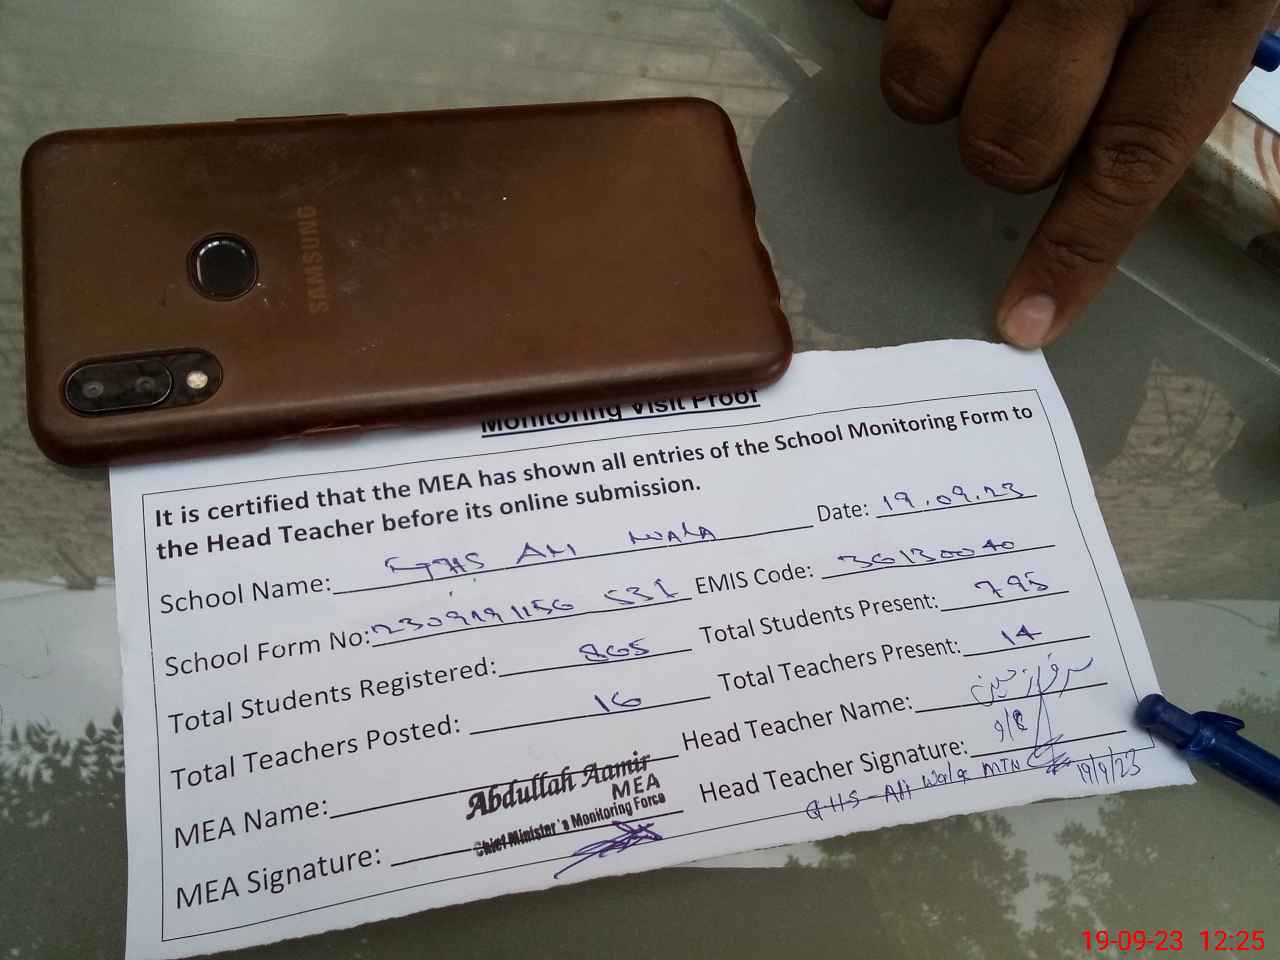 SAMSUNG
Monitoring Visit Proof
It is certified that the MEA has shown all entries of the School Monitoring Form to
the Head Teacher before its online submission.
School Name: GHS Ali WALA Date: 19.09.23
School Form No: EMIS Code: 36130040
Total Students Registered: 865 Total Students Present: 795
Total Teachers Posted: 16 Total Teachers Present: 14
MEA Name: Abdullah Aamir Head Teacher Name: سرفراز حسین
MEA
Chief Minister's Monitoring Force
MEA Signature: Head Teacher Signature:
GHS Ali Wala MTN 19/9/23
19-09-23 12:25